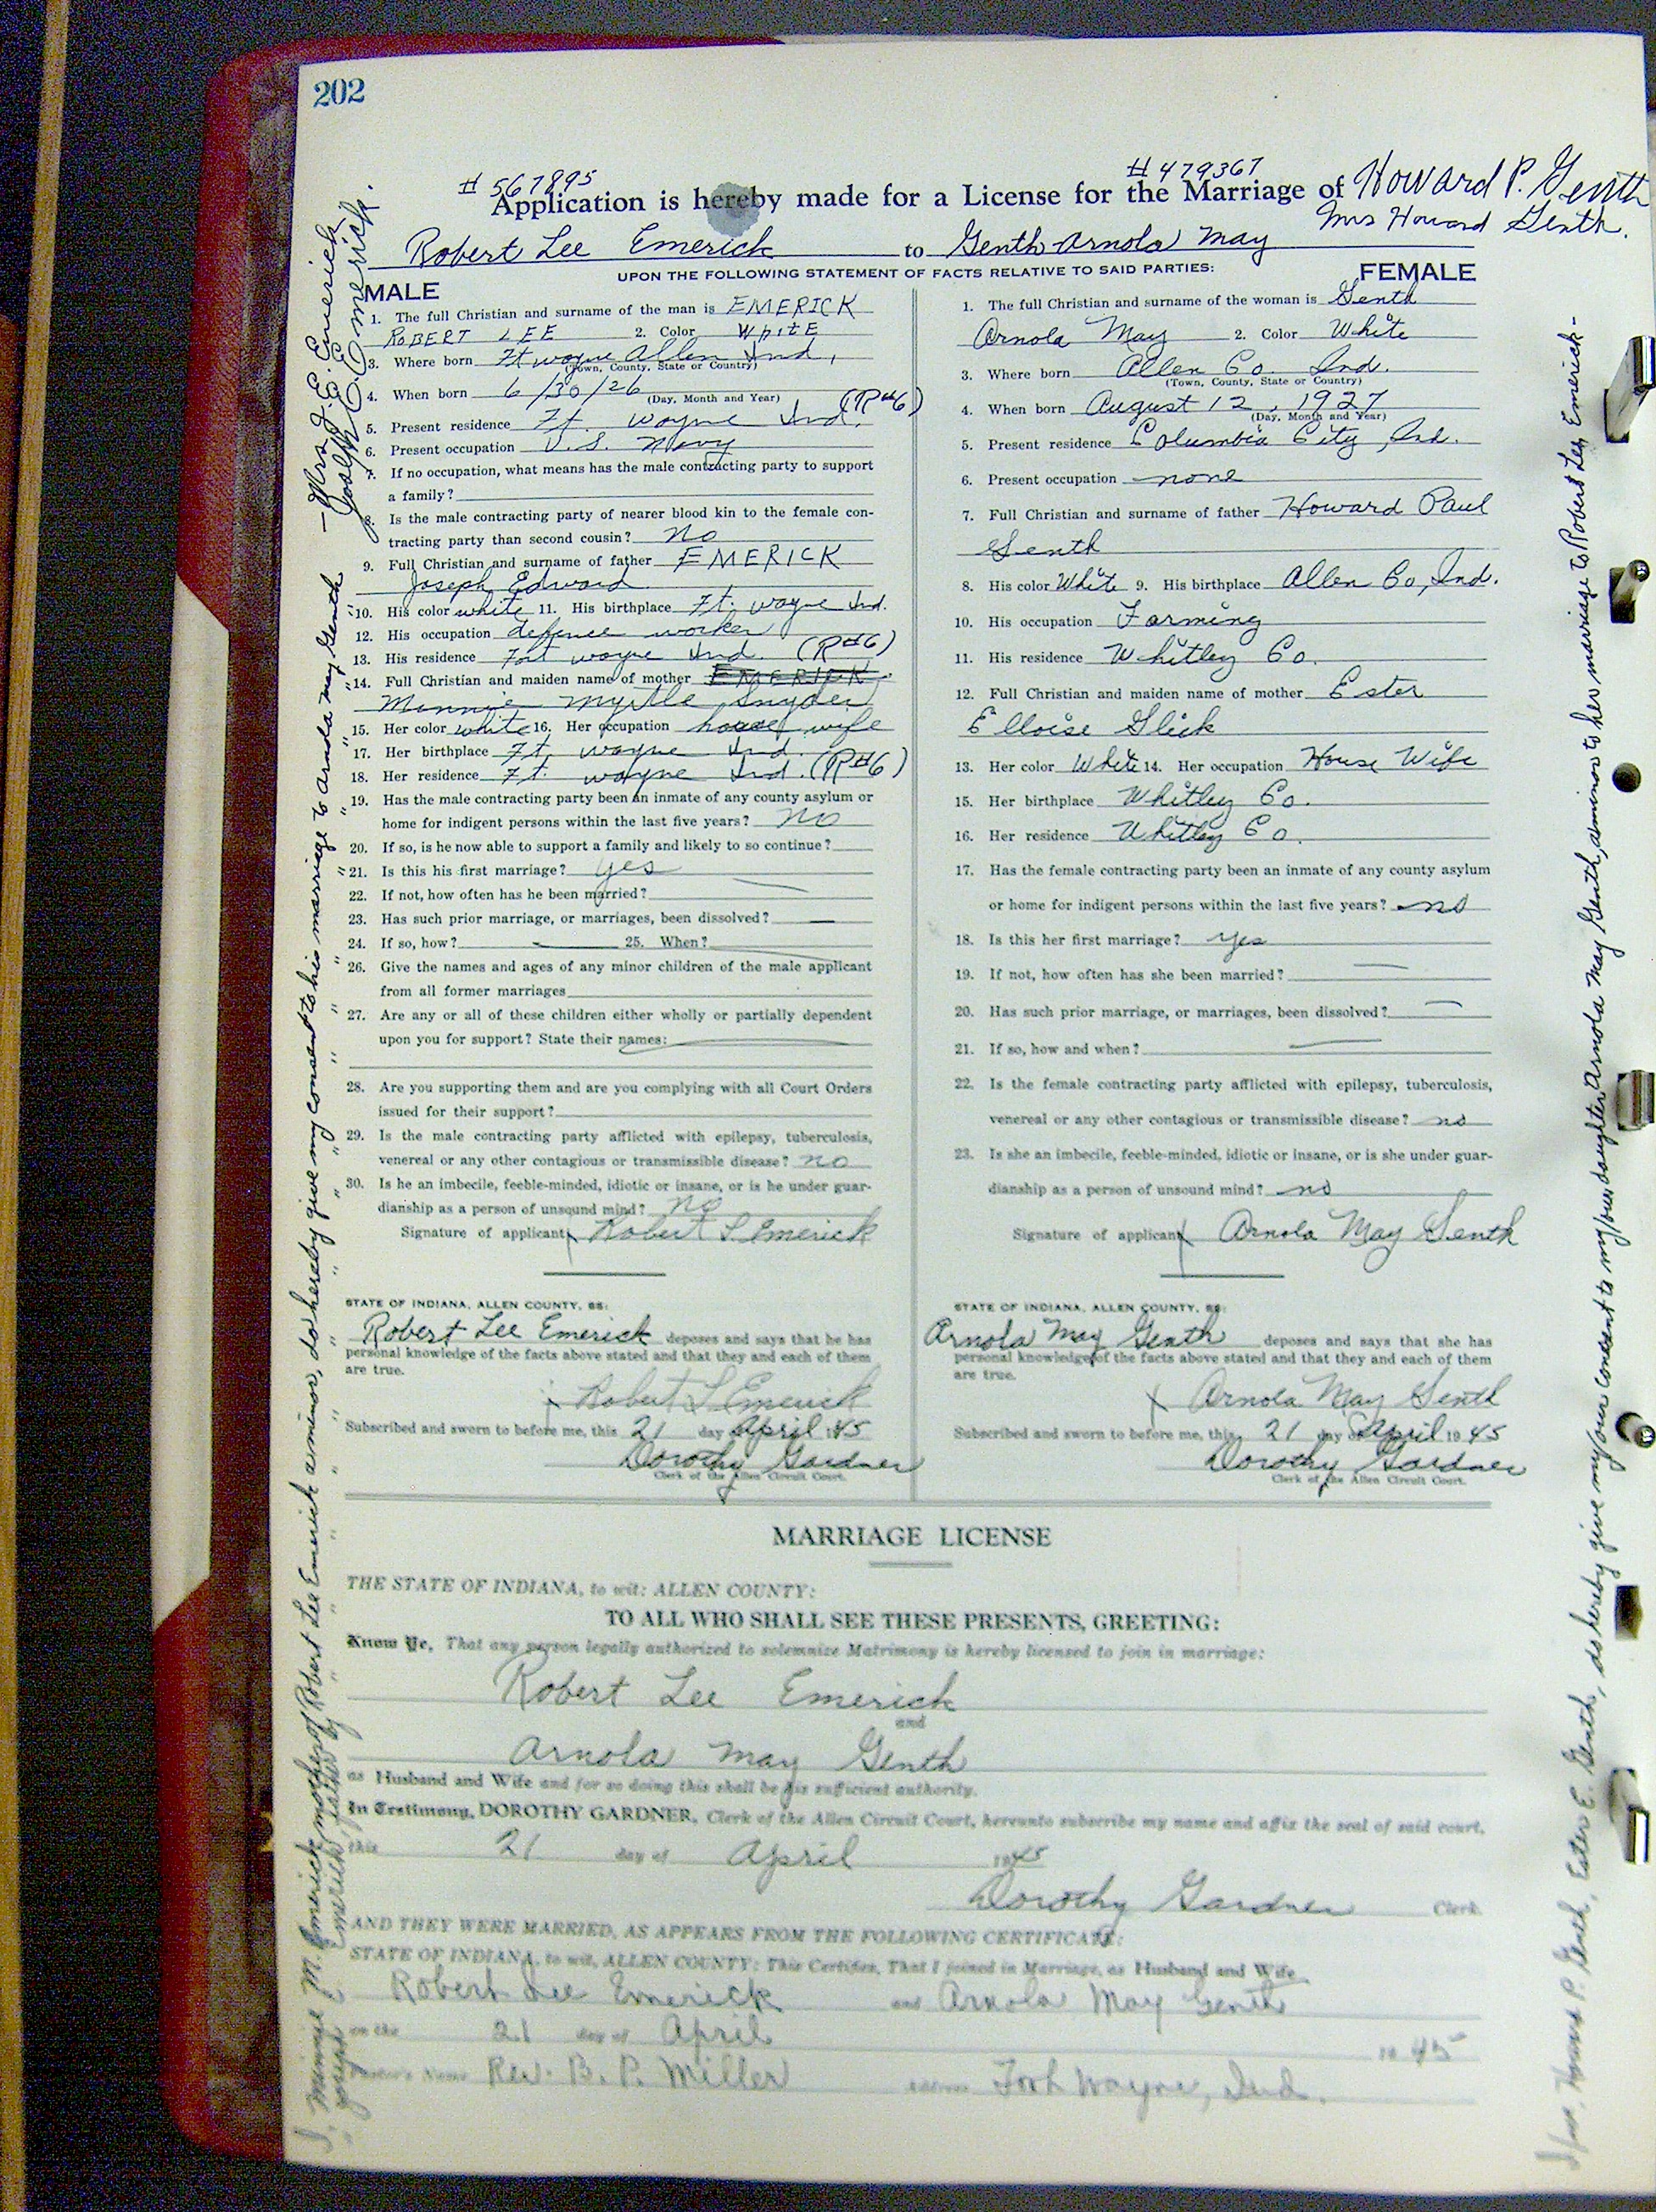 202
# 567895
# 479367
Application is hereby made for a License for the Marriage of Howard P. Genth
Mrs Howard Genth.
Robert Lee Emerick to Genth Arnola May
UPON THE FOLLOWING STATEMENT OF FACTS RELATIVE TO SAID PARTIES:
MALE
1. The full Christian and surname of the man is EMERICK
ROBERT LEE 2. Color WhitE
3. Where born Ft wayne Allen Ind,
(Town, County, State or Country)
4. When born 6/30/26
(Day, Month and Year)
(R#6)
5. Present residence Ft. wayne Ind.
6. Present occupation U.S. Navy
7. If no occupation, what means has the male contracting party to support
a family?
8. Is the male contracting party of nearer blood kin to the female con-
tracting party than second cousin? No
9. Full Christian and surname of father EMERICK
Joseph Edward
10. His color white 11. His birthplace Ft. wayne Ind.
12. His occupation defence worker
13. His residence Fort wayne Ind. (R#6)
14. Full Christian and maiden name of mother EMERICK
Minnie Myrtle Snyder
15. Her color white 16. Her occupation house wife
17. Her birthplace Ft. wayne Ind.
18. Her residence Ft. wayne Ind. (R#6)
19. Has the male contracting party been an inmate of any county asylum or
home for indigent persons within the last five years? No
20. If so, is he now able to support a family and likely to so continue?
21. Is this his first marriage? yes
22. If not, how often has he been married?
23. Has such prior marriage, or marriages, been dissolved? —
24. If so, how? — 25. When?
26. Give the names and ages of any minor children of the male applicant
from all former marriages
27. Are any or all of these children either wholly or partially dependent
upon you for support? State their names:
28. Are you supporting them and are you complying with all Court Orders
issued for their support?
29. Is the male contracting party afflicted with epilepsy, tuberculosis,
venereal or any other contagious or transmissible disease? no
30. Is he an imbecile, feeble-minded, idiotic or insane, or is he under guar-
dianship as a person of unsound mind? no
Signature of applicant x Robert L Emerick
STATE OF INDIANA, ALLEN COUNTY, SS:
Robert Lee Emerick deposes and says that he has
personal knowledge of the facts above stated and that they and each of them
are true.
x Robert L Emerick
Subscribed and sworn to before me, this 21 day of April 1945
Dorothy Gardner
Clerk of the Allen Circuit Court.
FEMALE
1. The full Christian and surname of the woman is Genth
Arnola May 2. Color White
3. Where born Allen Co. Ind.
(Town, County, State or Country)
4. When born August 12, 1927
(Day, Month and Year)
5. Present residence Columbia City, Ind.
6. Present occupation none
7. Full Christian and surname of father Howard Paul
Genth
8. His color White 9. His birthplace Allen Co, Ind.
10. His occupation Farming
11. His residence Whitley Co.
12. Full Christian and maiden name of mother Ester
Elloise Glick
13. Her color White 14. Her occupation House Wife
15. Her birthplace Whitley Co.
16. Her residence Whitley Co.
17. Has the female contracting party been an inmate of any county asylum
or home for indigent persons within the last five years? no
18. Is this her first marriage? yes
19. If not, how often has she been married? —
20. Has such prior marriage, or marriages, been dissolved? —
21. If so, how and when? —
22. Is the female contracting party afflicted with epilepsy, tuberculosis,
venereal or any other contagious or transmissible disease? no
23. Is she an imbecile, feeble-minded, idiotic or insane, or is she under guar-
dianship as a person of unsound mind? no
Signature of applicant x Arnola May Genth
STATE OF INDIANA, ALLEN COUNTY, SS:
Arnola May Genth deposes and says that she has
personal knowledge of the facts above stated and that they and each of them
are true.
x Arnola May Genth
Subscribed and sworn to before me, this 21 day of April 1945
Dorothy Gardner
Clerk of the Allen Circuit Court.
MARRIAGE LICENSE
THE STATE OF INDIANA, to wit: ALLEN COUNTY:
TO ALL WHO SHALL SEE THESE PRESENTS, GREETING:
Know Ye, That any person legally authorized to solemnize Matrimony is hereby licensed to join in marriage:
Robert Lee Emerick
and
Arnola May Genth
as Husband and Wife and for so doing this shall be his sufficient authority.
In Testimony, DOROTHY GARDNER, Clerk of the Allen Circuit Court, hereunto subscribe my name and affix the seal of said court,
this 21 day of April 1945
Dorothy Gardner Clerk
AND THEY WERE MARRIED, AS APPEARS FROM THE FOLLOWING CERTIFICATE:
STATE OF INDIANA, to wit, ALLEN COUNTY: This Certifies, That I joined in Marriage, as Husband and Wife
Robert Lee Emerick and Arnola May Genth
on the 21 day of April 1945
Pastor's Name Rev. B. P. Miller Address Fort Wayne, Ind.
I, Minnie M. Emerick mother of Robert Lee Emerick a minor, do hereby give my consent to his marriage to Arnola May Genth — Mrs J. E. Emerick
" Joseph E. Emerick father of " " " " " " " " " " " " " Joseph E. Emerick.
Howard P. Genth, Ester E. Genth, do hereby give my/our consent to my/our daughter Arnola May Genth, a minor to her marriage to Robert Lee Emerick -